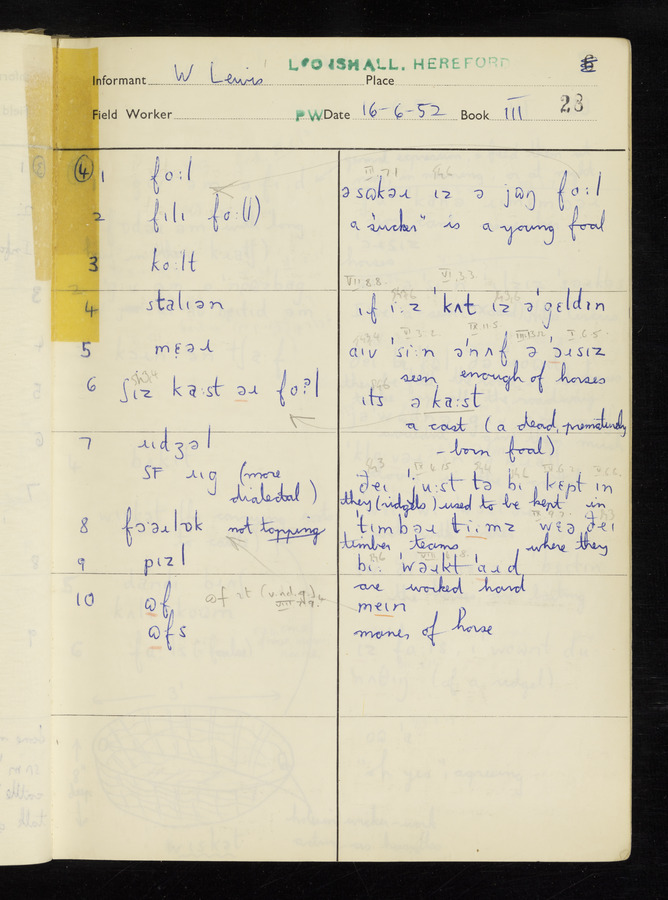 Informant W Lewis Place LEONSHALL, HEREFORD
Field Worker PW Date 16-6-52 Book III 23
④ 1 fo:l
2 fɪlɪ fo:(l)
3 ko:lt
4 stalɪən
5 mɛəɹ
6 ʃɪz ka:st əɹ fo:l
7 ɹɪdʒəl
SF ɹɪg (more
dialectal)
8 fɔ:əɹlɒk not topping
9 pɪzl
10 ɒf
ɒfs
ə sɒkəɹ ɪz ə jɒŋ fo:l
a "sucker" is a young foal
ɪf i:z 'kʌt ɪz ə 'gɛldɪn
aɪv 'si:n ə'nʌf ə 'ɔɹsɪz
seen enough of horses
its ə ka:st
a cast (a dead, prematurely
-born foal)
ðeɪ 'ju:st tə bɪ kɛpt ɪn
they (ridgels) used to be kept in
'tɪmbəɹ ti:mz wɛə ðeɪ
timber teams where they
bi: 'wəɹkt 'aɹd
are worked hard
meɪn
manes of horse